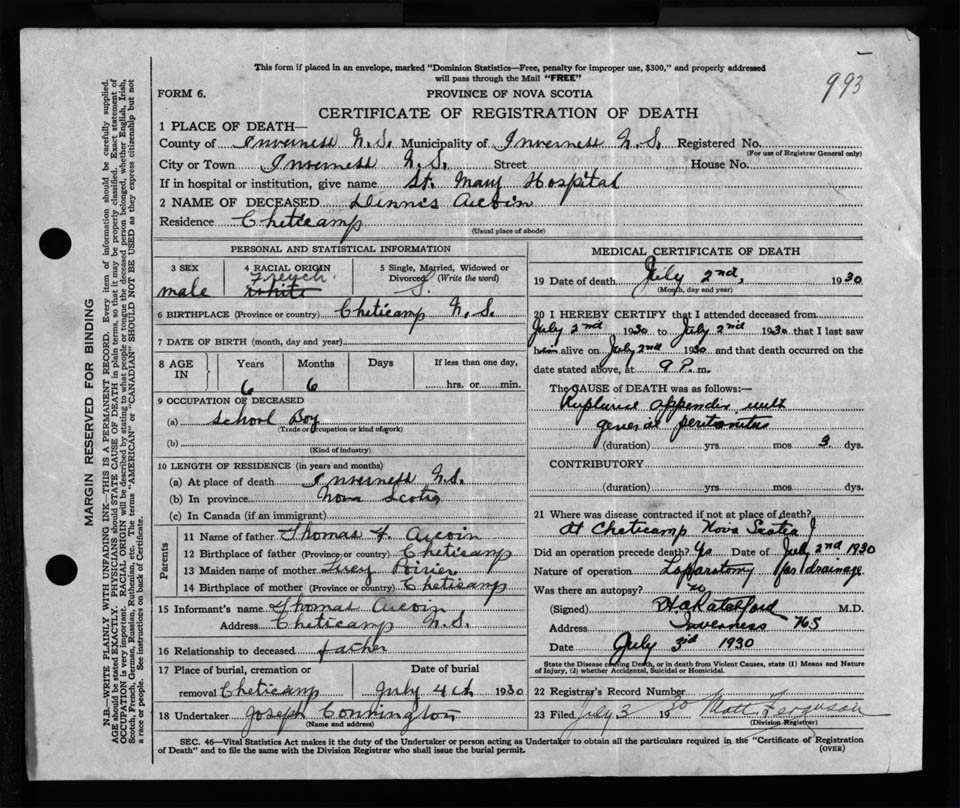 993
This form if placed in an envelope, marked "Dominion Statistics—Free, penalty for improper use, $300," and properly addressed
will pass through the Mail "FREE"
FORM 6. PROVINCE OF NOVA SCOTIA
CERTIFICATE OF REGISTRATION OF DEATH
1 PLACE OF DEATH—
County of Inverness N.S. Municipality of Inverness N.S. Registered No.
(For use of Registrar General only)
City or Town Inverness N.S. Street House No.
If in hospital or institution, give name St. Mary Hospital
2 NAME OF DECEASED Dennis Aucoin
Residence Cheticamp
(Usual place of abode)
PERSONAL AND STATISTICAL INFORMATION
3 SEX 4 RACIAL ORIGIN 5 Single, Married, Widowed or
Divorced, (Write the word)
male French white S.
6 BIRTHPLACE (Province or country) Cheticamp N.S.
7 DATE OF BIRTH (month, day and year)
8 AGE IN Years Months Days If less than one day,
6 6 hrs. or min.
9 OCCUPATION OF DECEASED
(a) School Boy
(Trade or occupation or kind of work)
(b)
(Kind of industry)
10 LENGTH OF RESIDENCE (in years and months)
(a) At place of death Inverness N.S.
(b) In province Nova Scotia
(c) In Canada (if an immigrant)
Parents
11 Name of father Thomas Aucoin
12 Birthplace of father (Province or country) Cheticamp
13 Maiden name of mother Lucy Poirier
14 Birthplace of mother (Province or country) Cheticamp
15 Informant's name Thomas Aucoin
Address Cheticamp N.S.
16 Relationship to deceased father
17 Place of burial, cremation or Date of burial
removal Cheticamp July 4th 1930
18 Undertaker Joseph
(Name and address)
MEDICAL CERTIFICATE OF DEATH
19 Date of death July 2nd, 1930
(Month, day and year)
20 I HEREBY CERTIFY that I attended deceased from
July 2nd 1930 to July 2nd 1930 that I last saw
him alive on July 2nd 1930 and that death occurred on the
date stated above, at 9 P. m.
The CAUSE OF DEATH was as follows:—
Ruptured appendix with
general peritonitis
(duration) yrs mos 3 dys.
CONTRIBUTORY
(duration) yrs. mos. dys.
21 Where was disease contracted if not at place of death?
At Cheticamp Nova Scotia
Did an operation precede death? Yes Date of July 2nd 1930
Nature of operation Laparotomy for drainage
Was there an autopsy? no
(Signed) M.D.
Address Inverness NS
Date July 3rd 1930
State the Disease causing Death, or in death from Violent Causes, state (1) Means and Nature
of Injury, (2) whether Accidental, Suicidal or Homicidal.
22 Registrar's Record Number
23 Filed July 3 1930 Matt Ferguson
(Division Registrar)
SEC. 46—Vital Statistics Act makes it the duty of the Undertaker or person acting as Undertaker to obtain all the particulars required in the "Certificate of Registration
of Death" and to file the same with the Division Registrar who shall issue the burial permit. (OVER)
MARGIN RESERVED FOR BINDING
N.B.—WRITE PLAINLY WITH UNFADING INK—THIS IS A PERMANENT RECORD. Every item of information should be carefully supplied.
AGE should be stated EXACTLY. PHYSICIANS should STATE CAUSE OF DEATH in plain terms, so that it may be properly classified. Exact statement of
OCCUPATION is very important. RACIAL ORIGIN will be described by stating to what people or tongue the deceased person belonged, whether English, Irish,
Scotch, French, German, Russian, Ruthenian, etc. The terms "AMERICAN" or "CANADIAN" SHOULD NOT BE USED as they express citizenship but not
a race or people. See instructions on back of Certificate.